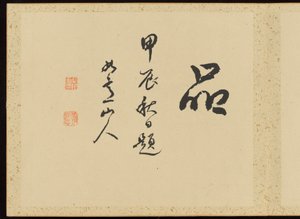 品
甲辰秋日題
山人